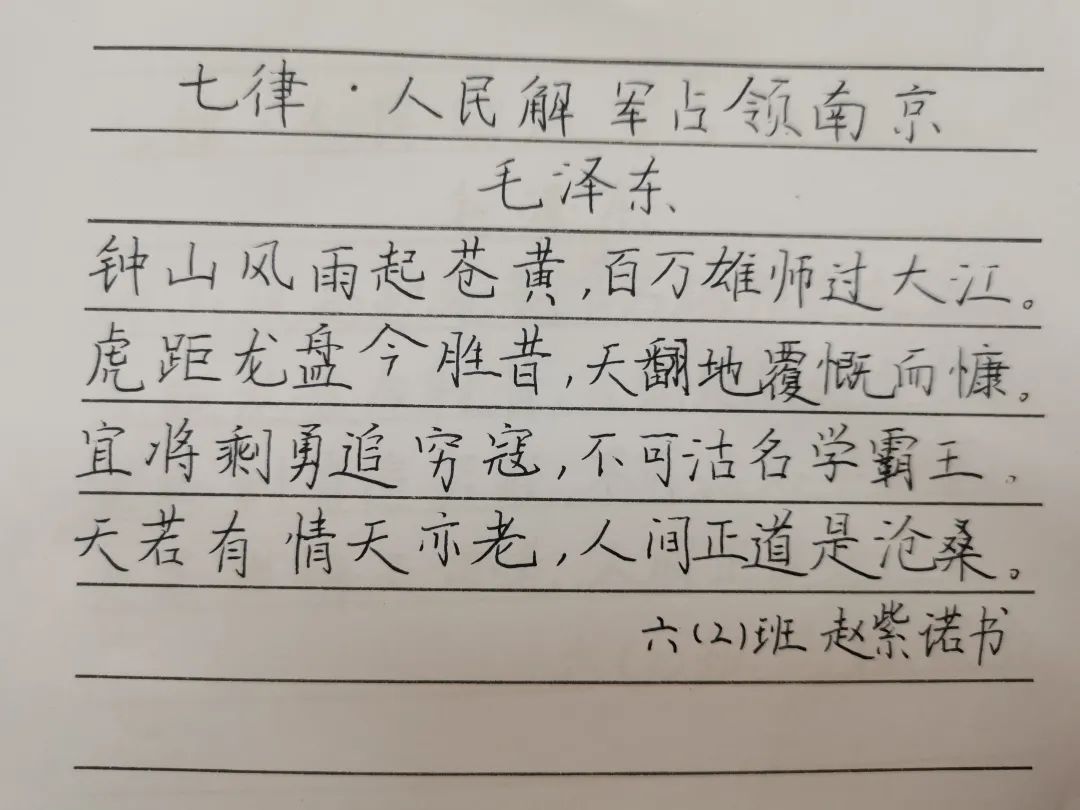 七律·人民解军占领南京
毛泽东
钟山风雨起苍黄,百万雄师过大江。
虎距龙盘今胜昔,天翻地覆慨而慷。
宜将剩勇追穷寇,不可沽名学霸王。
天若有情天亦老,人间正道是沧桑。
六(2)班 赵紫诺书